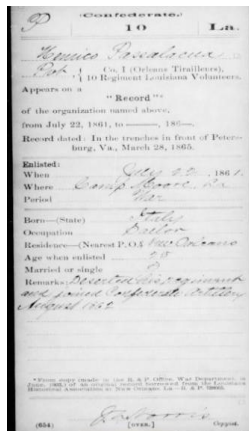 P
(Confederate.)
10 La.
Henrico Passalacua
Pvt, Co. I (Orleans Tirailleurs),
10 Regiment Louisiana Volunteers.
Appears on a
"Record"*
of the organization named above,
from July 22, 1861, to ———, 186—.
Record dated: In the trenches in front of Peters-
burg, Va., March 28, 1865.
Enlisted:
When July 22, 1861.
Where Camp Moore La
Period War
Born—(State) Italy
Occupation
Residence—(Nearest P.O.) New Orleans
Age when enlisted 28
Married or single
Remarks: Deserted his regiment
and joined Confederate Artillery
August 1862
(654) [OVER.] Copyist.